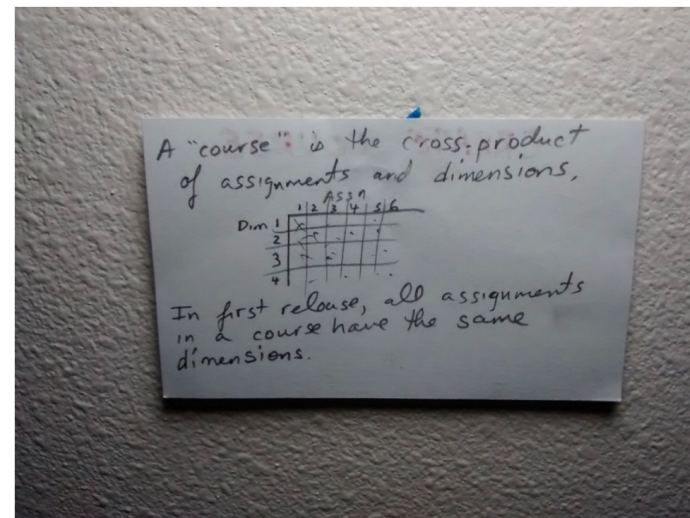 A "course" is the cross-product
of assignments and dimensions.
Assn
1 2 3 4 5 6
Dim 1
2
3
4
In first release, all assignments
in a course have the same
dimensions.